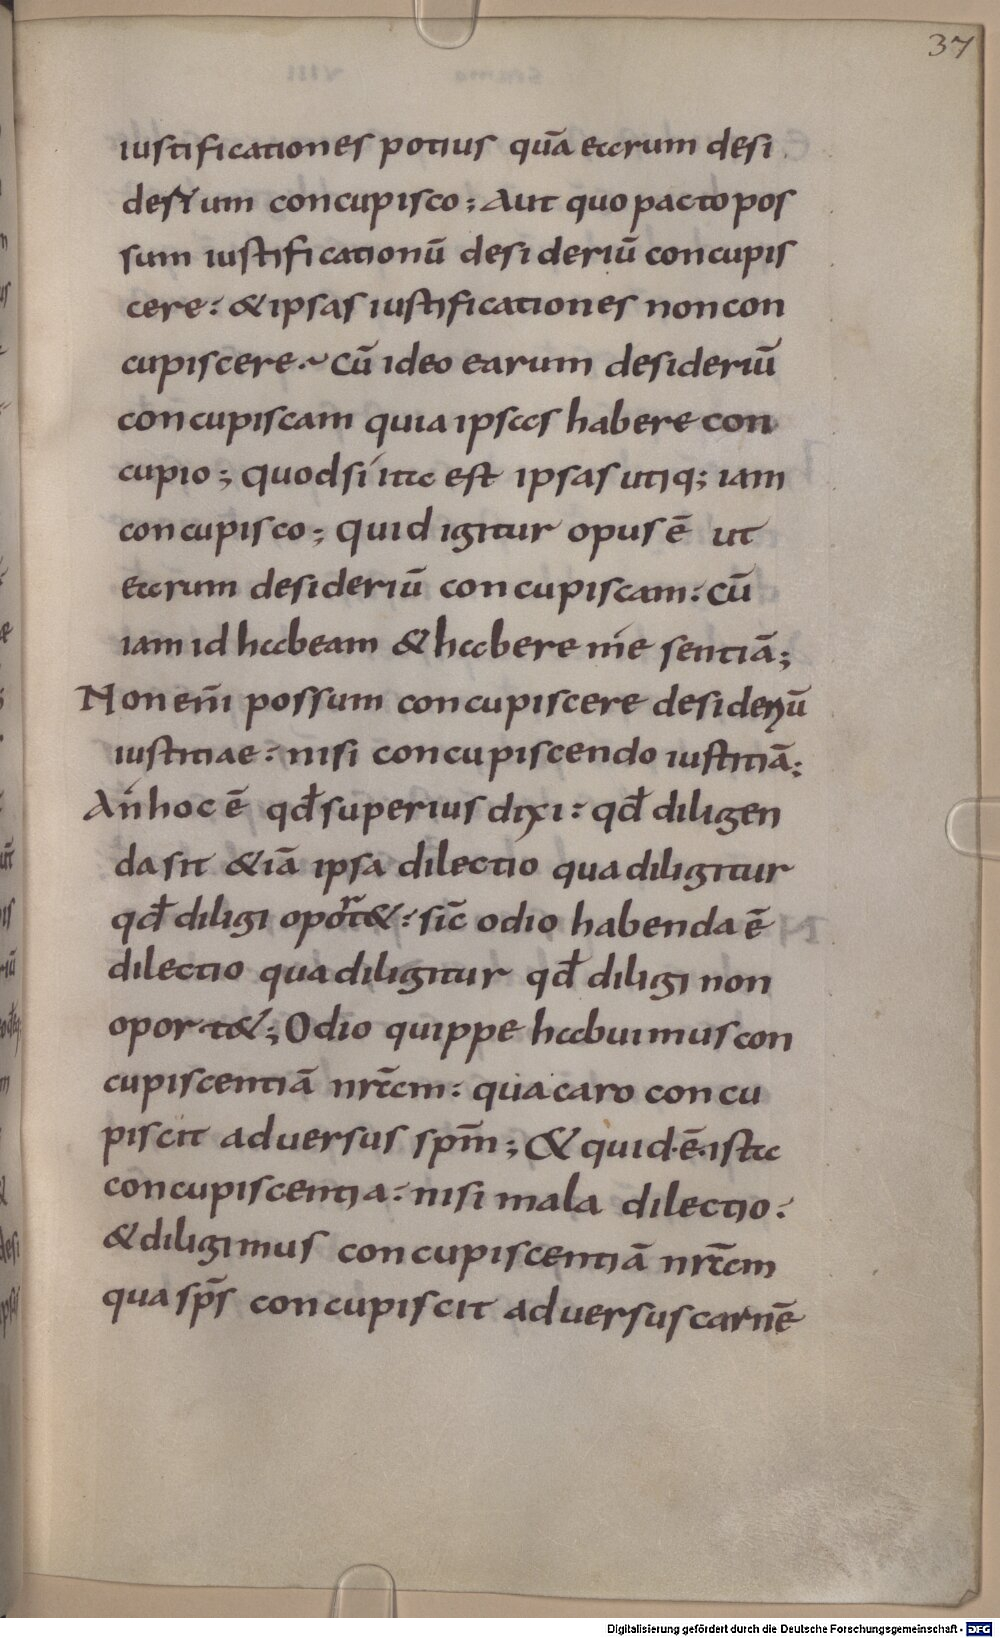 37
iustificationes potius quā earum desi
derium concupisco; Aut quo pacto pos
sum iustificationū desideriū concupis
cere: & ipsas iustificationes non con
cupiscere. Cū ideo earum desideriū
concupiscam quia ipsas habere con
cupio; quodsi ita est ipsas utiq; iam
concupisco; quid igitur opus ē ut
earum desideriū concupiscam: cū
iam id habeam & habere me sentiā;
Non enī possum concupiscere desideriū
iustitiae: nisi concupiscendo iustitiā;
An hoc ē qđ superius dixi: qđ diligen
da sit & iā ipsa dilectio qua diligitur
qđ diligi oportet: sic̄ odio habenda ē
dilectio qua diligitur qđ diligi non
oport&; Odio quippe habuimus con
cupiscentiā nr̄am: qua caro concu
piscit adversus sp̄m; & quid ē ista
concupiscentia: nisi mala dilectio:
& diligimus concupiscentiā nr̄am
qua sp̄s concupiscit adversus carnē
Digitalisierung gefördert durch die Deutsche Forschungsgemeinschaft - DFG